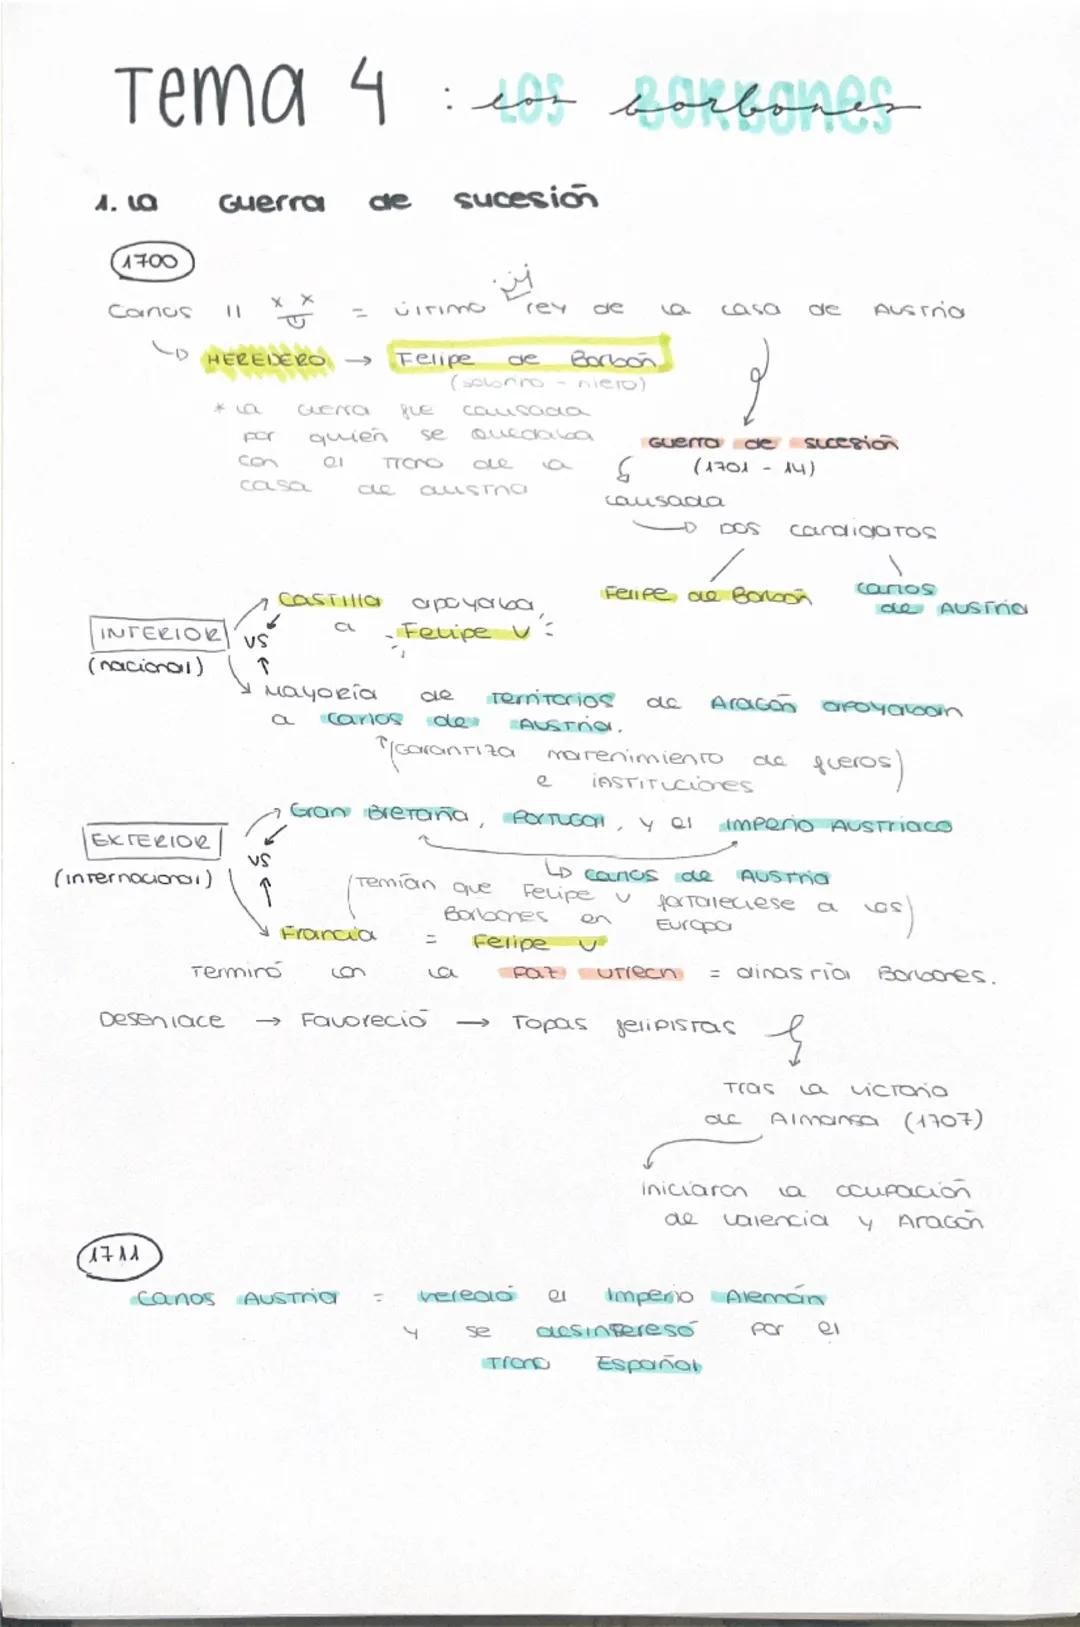 Tema 4 : LOS BORBONES
los borbones
1. La Guerra de sucesión
1700
Carlos II = último rey de la casa de Austria
HEREDERO → Felipe de Borbón
(sobrino - nieto)
* La Guerra fue causada
por quién se quedaba
con el Trono de la
casa de austria
Guerra de sucesión
(1701 - 14)
causada
DOS candidatos
Felipe de Borbón
Carlos
de Austria
INTERIOR
(nacional)
Castilla apoyaba
a Felipe V
VS
Mayoría de Territorios de Aragón apoyaban
a Carlos de Austria.
(Garantiza matenimiento de fueros)
e instituciones
EXTERIOR
(internacional)
Gran Bretaña, Portugal, y el imperio Austriaco
VS
Carlos de Austria
(Temían que Felipe V fortaleciese a los)
Borbones en Europa
Francia = Felipe V
Terminó con la Paz Utrech = dinastría Borbones.
Desenlace → Favoreció → Topas felipistas
Tras la victoria
de Almansa (1707)
iniciaron la ocupación
de Valencia y Aragón
1711
Carlos Austria = heredó el Imperio Alemán
y se desintereso por el
Trono Español